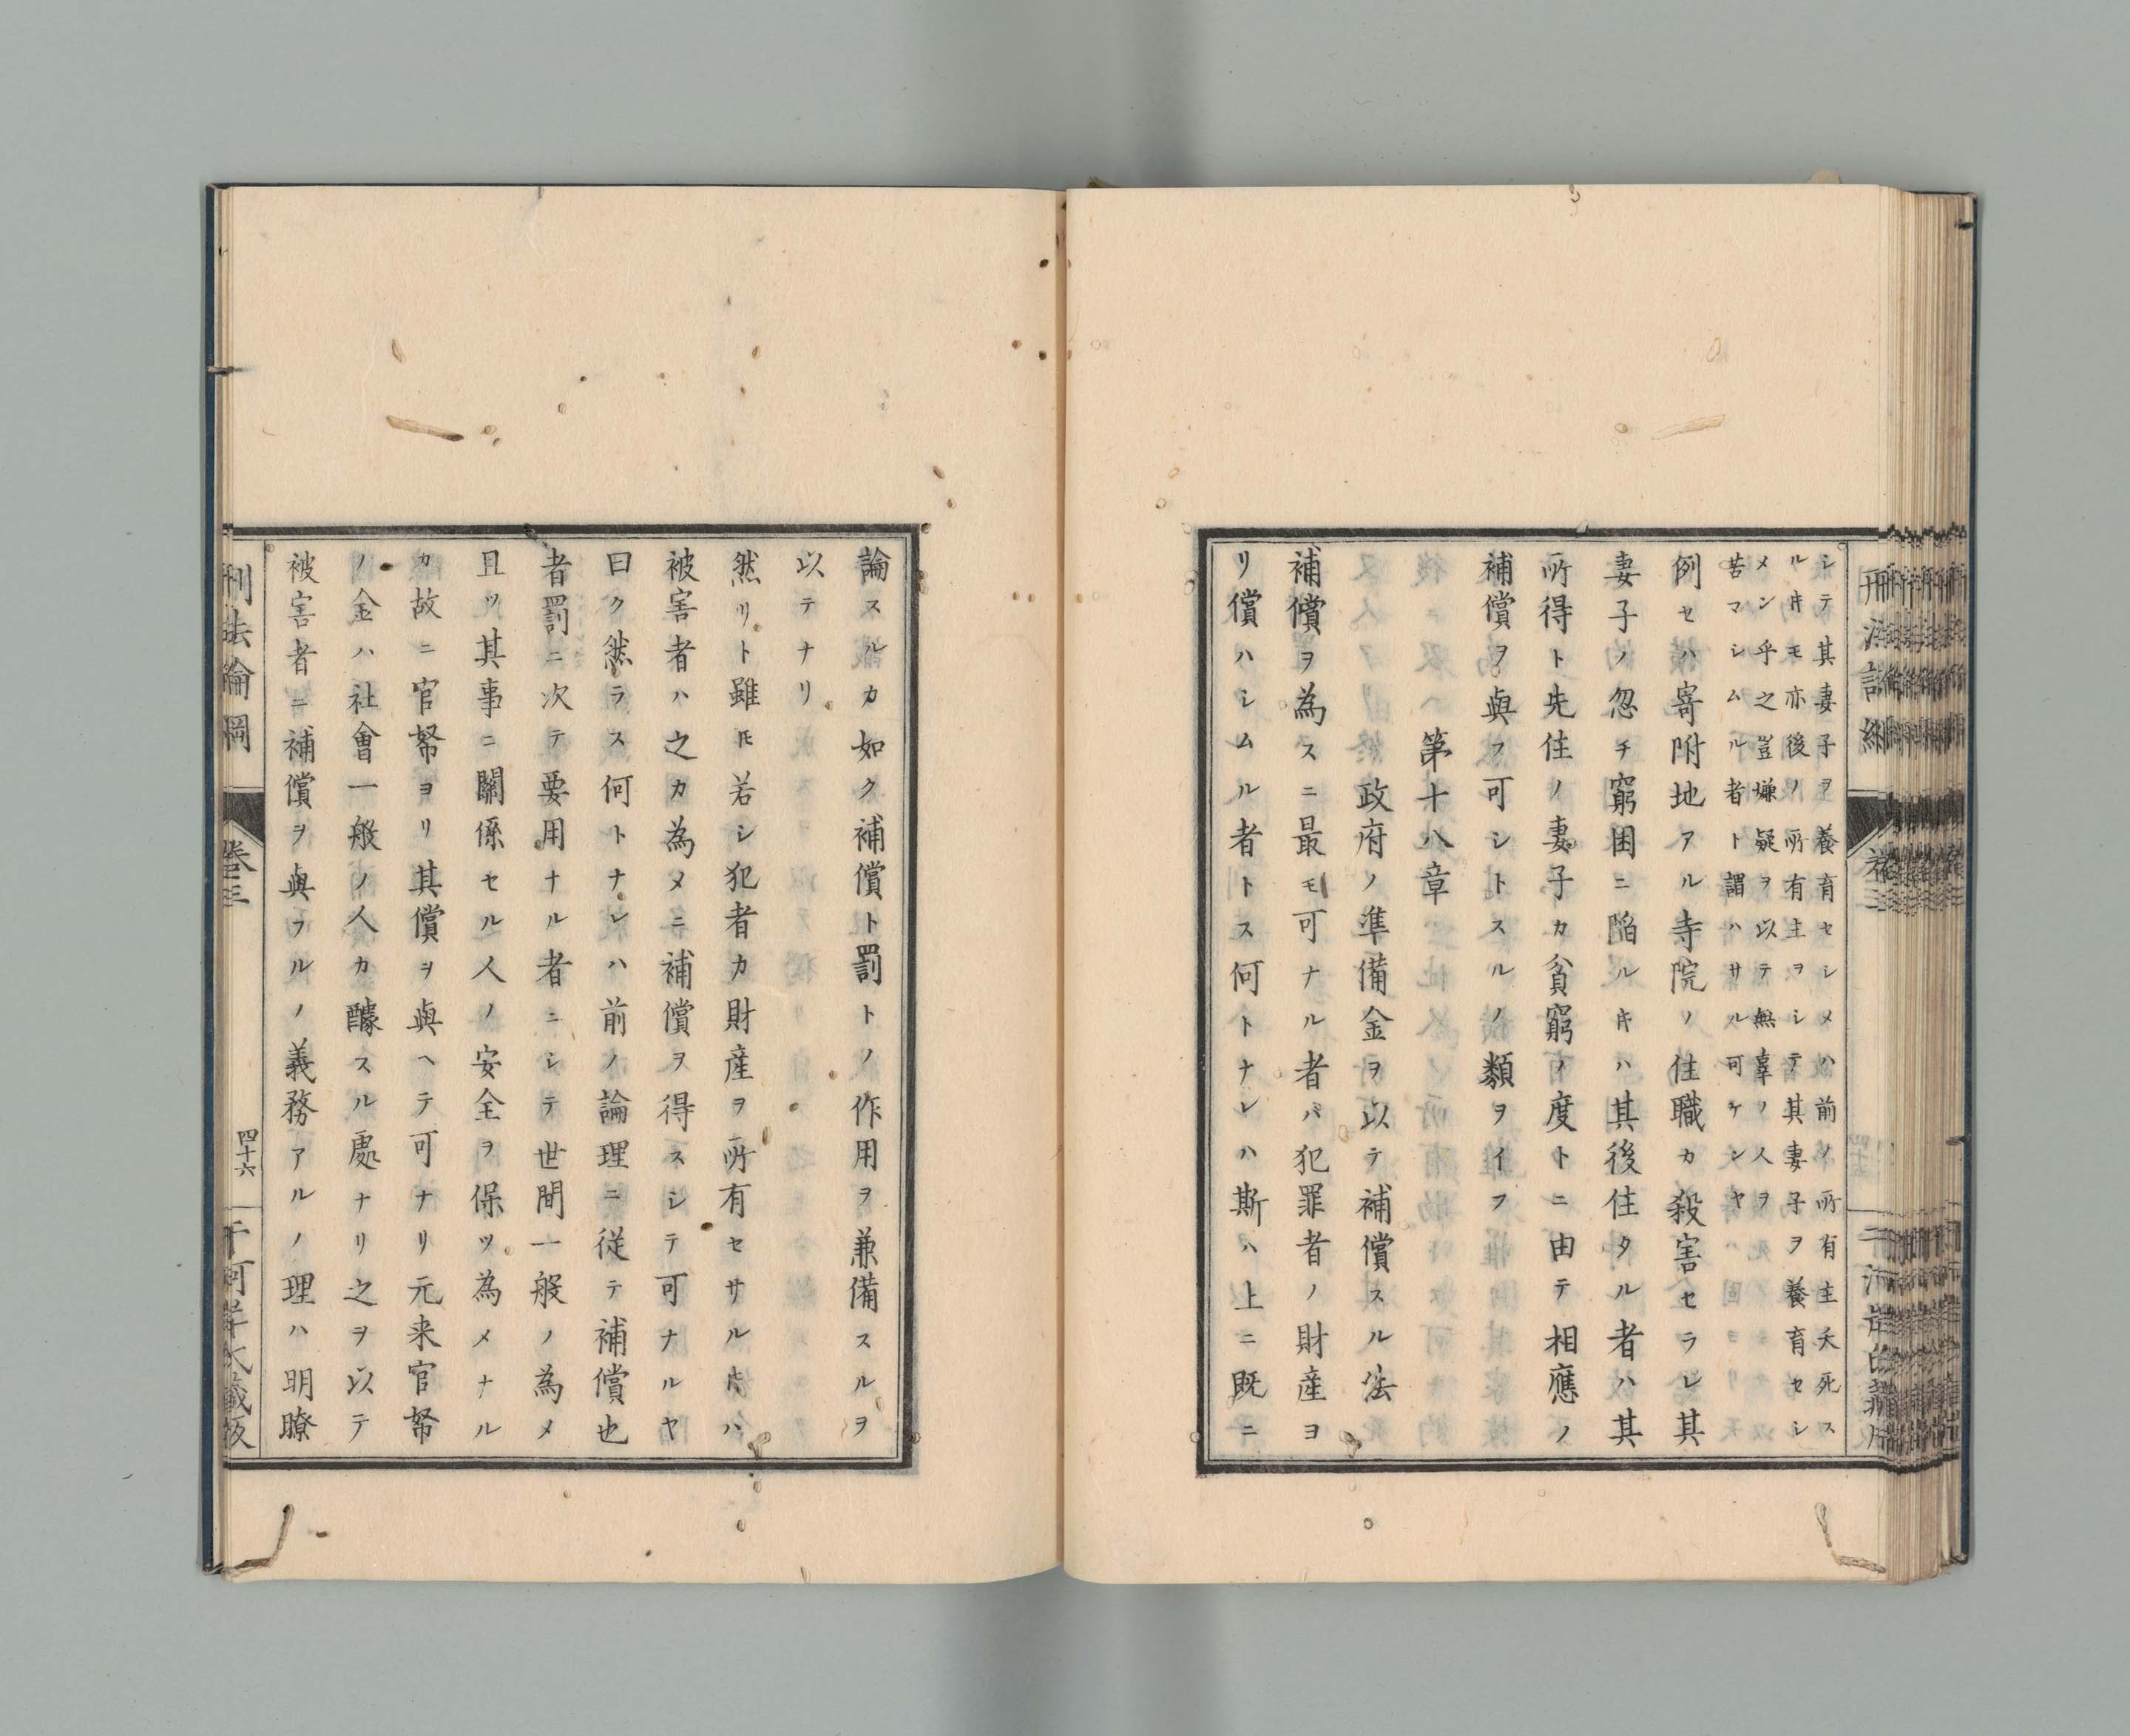 シテ其妻子ヲ養育セシメハ前ノ所有主夭死ス
ルキモ亦後ノ所有主ヲシテ其妻子ヲ養育セシ
メン乎之豈嫌疑ヲ以テ無辜ノ人ヲ
苦マシムル者ト謂ハサル可ケンヤ
例セハ寄附地アル寺院ノ住職カ殺害セラレ其
妻子ノ忽チ窮困ニ陥ルキハ其後住タル者ハ其
所得ト先住ノ妻子カ貧窮ノ度トニ由テ相應ノ
補償ヲ與フ可シトスルノ類ヲイフ
第十八章
政府ノ準備金ヲ以テ補償スル法
補償ヲ為スニ最モ可ナル者ハ犯罪者ノ財産ヨ
リ償ハシムル者トス何トナレハ斯ハ上ニ既ニ
論スルカ如ク補償ト罰トノ作用ヲ兼備スルヲ
以テナリ
然リト雖𪜈若シ犯者カ財産ヲ所有セサルキハ
被害者ハ之カ為メニ補償ヲ得スシテ可ナルヤ
曰ク然ラス何トナレハ前ノ論理ニ従テ補償也
者罰ニ次テ要用ナル者ニシテ世間一般ノ為メ
且ツ其事ニ關係セル人ノ安全ヲ保ツ為メナル
カ故ニ官帑ヨリ其償ヲ與ヘテ可ナリ元来官帑
ノ金ハ社會一般ノ人カ醵スル處ナリ之ヲ以テ
被害者ニ補償ヲ與フルノ義務アルノ理ハ明瞭
刑法論綱
卷三
四十六